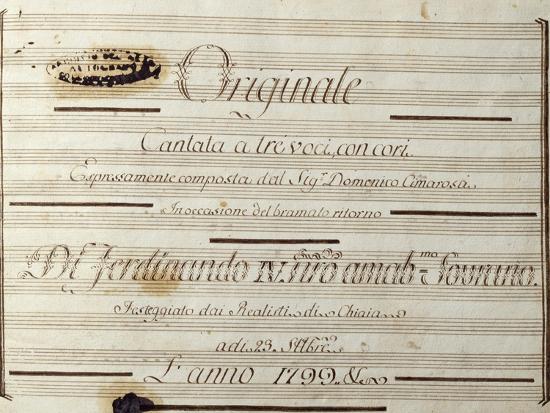 Originale
Cantata a tré voci, con cori.
Espressamente composta dal Sig.r Domenico Cimarosa.
In occasione del bramato ritorno
Di Ferdinando IV. nr̃o amab.mo Sovrano.
Festeggiato dai Realisti di Chiaia
a di 23. Sttbre
L'anno 1799. &